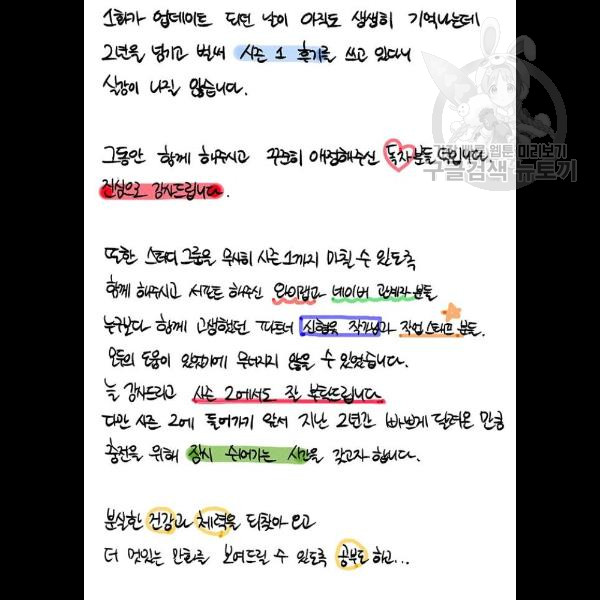 1화가 업데이트 되던 날이 아직도 생생히 기억나는데
2년을 넘기고 벌써 시즌 1 후기를 쓰고 있다니
실감이 나질 않습니다.
그동안 함께 해주시고 꾸준히 애정해주신 독자분들 덕입니다.
진심으로 감사드립니다.
또한 스터디 그룹을 무사히 시즌 1까지 마칠 수 있도록
함께 해주시고 서포트 해주신 와이랩과 네이버 관계자 분들
누구보다 함께 고생했던 파트너 신형욱 작가님과 작업 스태프 분들.
모두의 도움이 있었기에 무너지지 않을 수 있었습니다.
늘 감사드리고 시즌 2에서도 잘 부탁드립니다
다만 시즌 2에 들어가기 앞서 지난 2년간 바쁘게 달려온 만큼
충전을 위해 잠시 쉬어가는 시간을 갖고자 합니다.
분실한 건강과 체력을 되찾아 오고
더 멋있는 만화를 보여드릴 수 있도록 공부도 하고...
가장 빠른 웹툰 미리보기
구글검색 뉴토끼